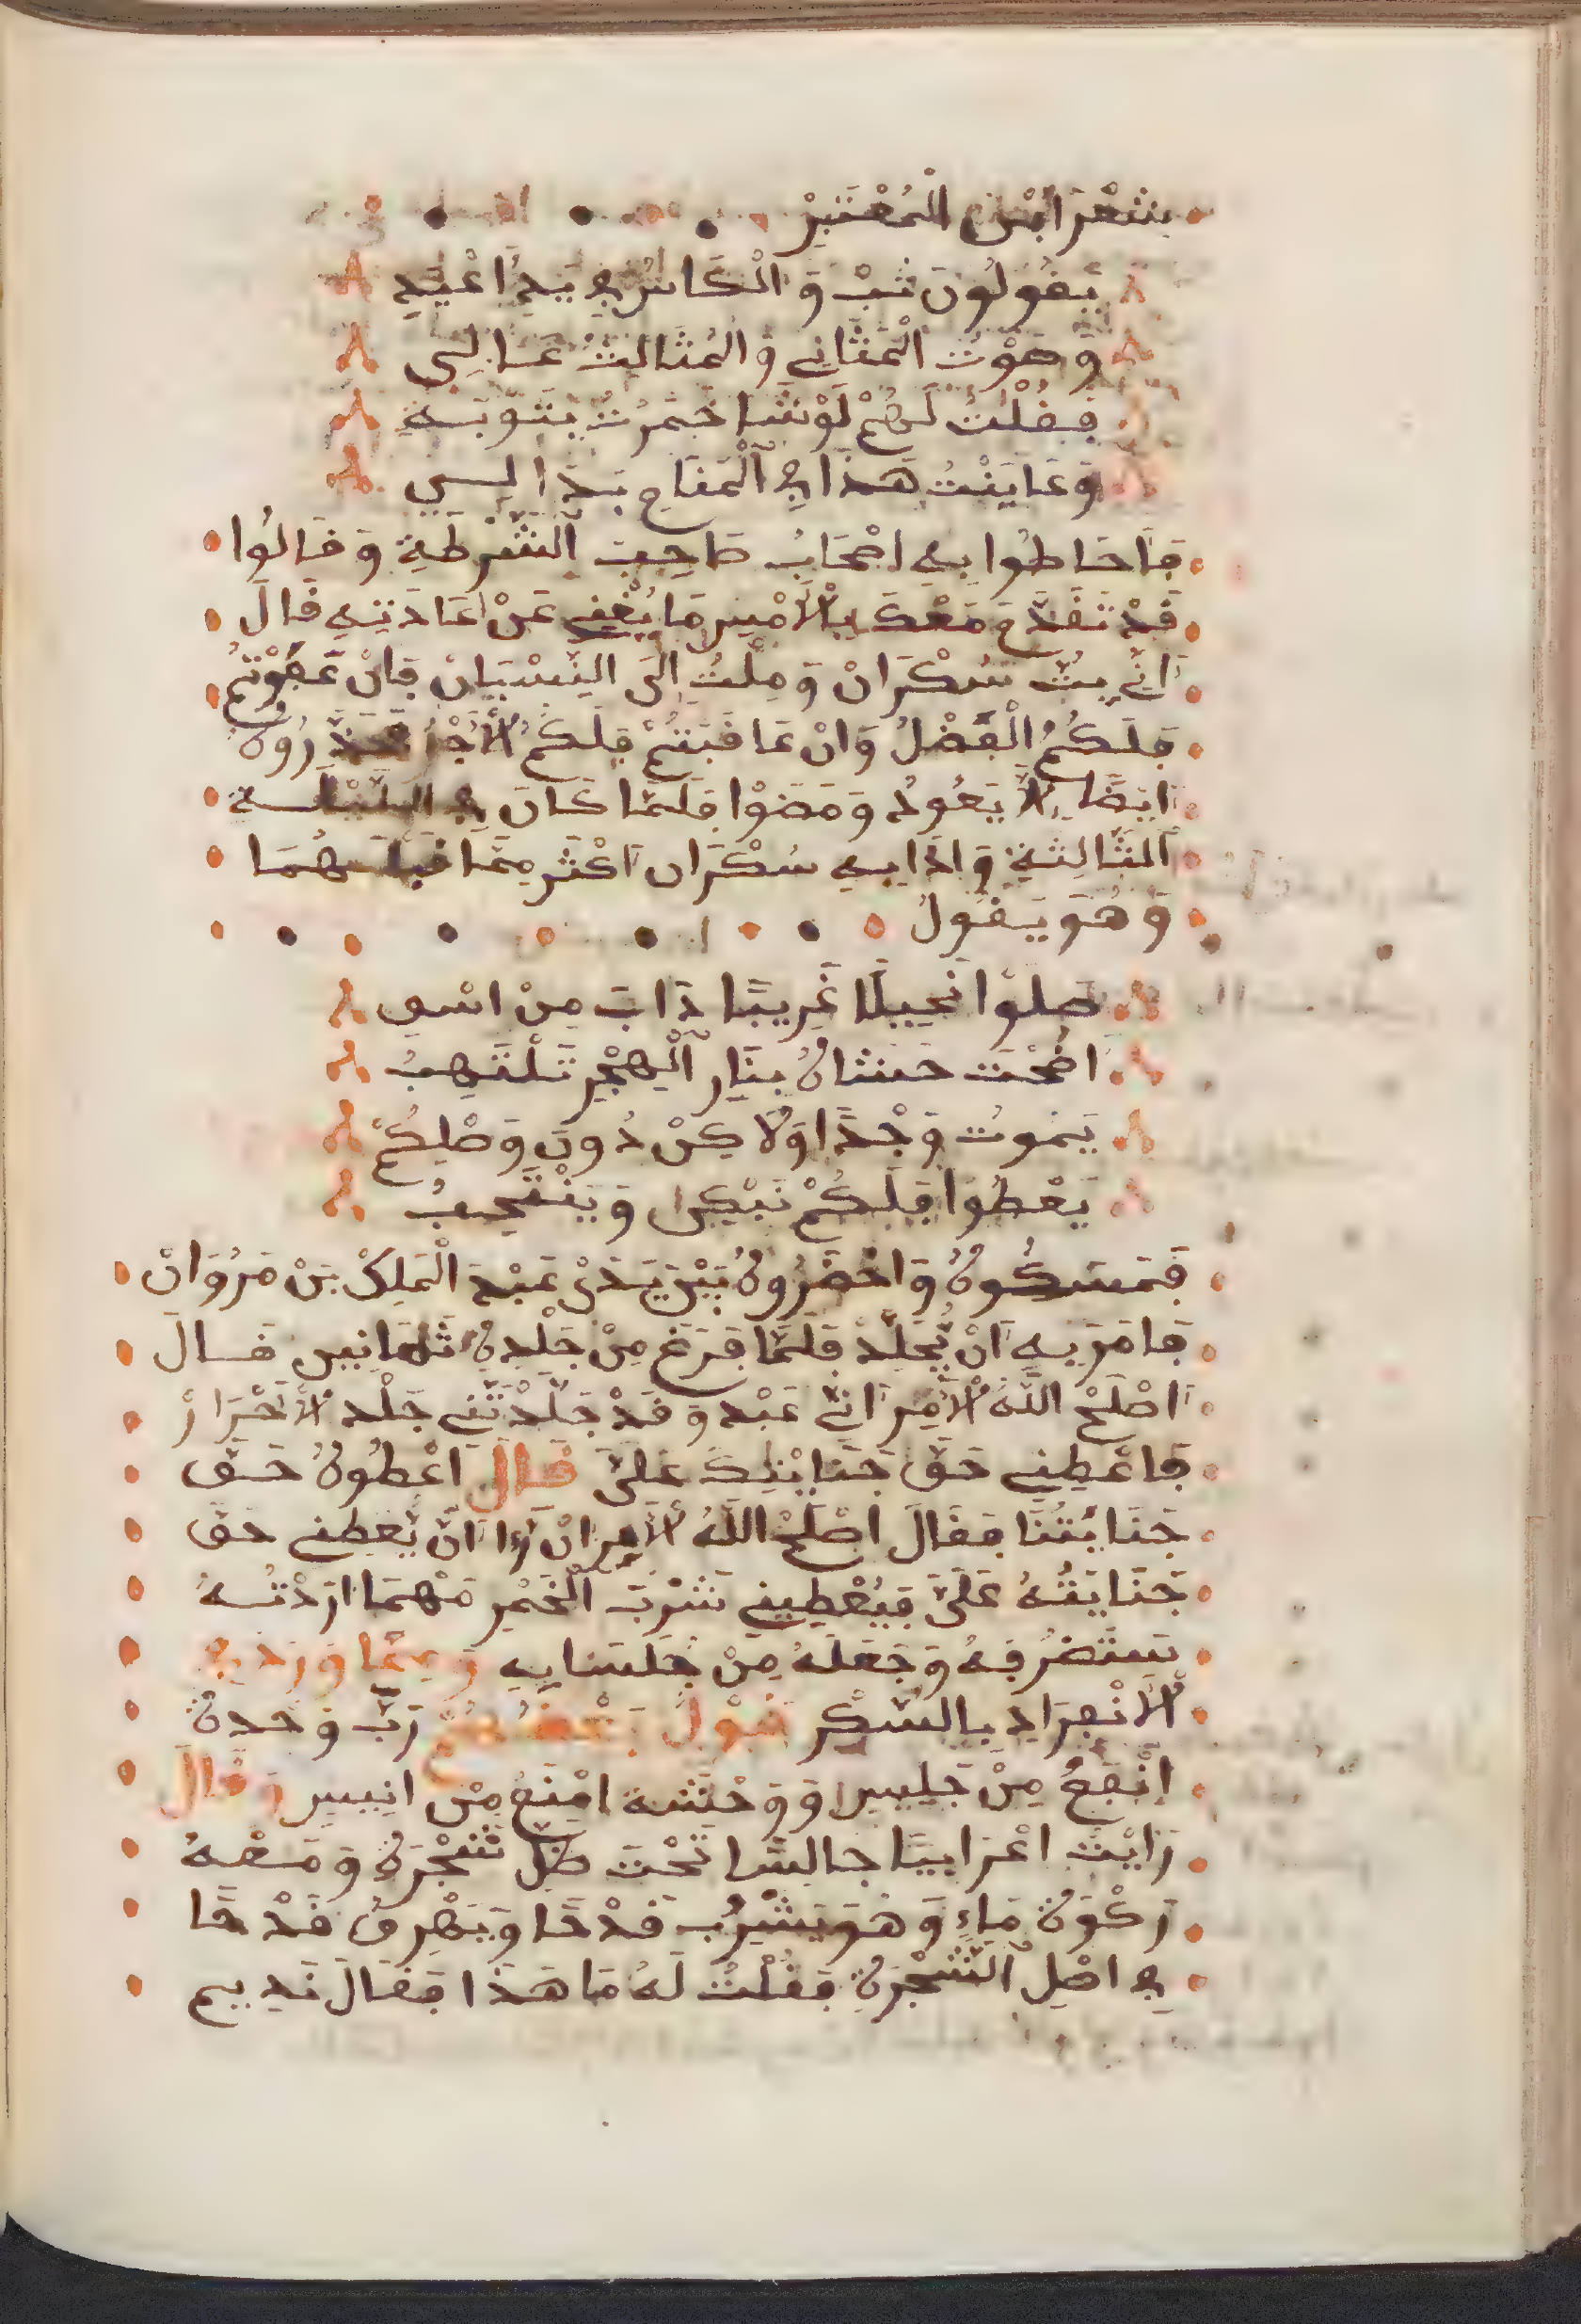 بشعر ابن المعتبر
يَقُولُونَ تبْ وَالْكَاسُ في يَدِ اغْيَدٍ
وَصَوْتُ الْمَثَانِي وَالمَثَالِثُ عَالِي
فَقُلْتُ لَهُمْ لَوْ شَا خَمَرْتُ بِتَوْبَةٍ
وَعَايَنْتُ هَذَا في الْمَقَامِ بَدَا لِي
فَأَحَاطُوا بِهِ اصْحَابُ صَاحِبِ الشُّرْطَةِ وَقَالُوا
قَدْ تَقَدَّمَ مَعْكَ بِالْأَمْسِ مَا يُغْنِي عَنْ اعَادَتِهِ قَالَ
انِّي بِتُّ سَكْرَانْ وَمِلْتُ إِلَى النِّسْيَانْ فَانْ عَفَوْتُمْ
فَلَكُمُ الْفَضْلُ وَانْ عَاقَبْتُمْ فَلَكُمُ الأَجْرُ فَحَذَّرُوهُ
ايضًا لا يَعُودُ وَمَضَوْا فَلَمَّا كَانَ في اللَّيْلَة
الثَّالِثَةِ وَاذَا بِهِ سَكْرَان اكْثَر مِمَّا قَبْلَهُمَا
وَهُوَ يَقُولُ
صِلُوا نَحِيلًا غَرِيبًا ذَابَ مِنْ اسْفٍ
اضْحَتْ حَشَاهُ بِنَارِ الْهَجْرِ تَلْتَهِبُ
يَمُوتُ وَجْدًا وَلَاكِنْ دُونَ وَصْلِكُمْ
يَعْطُوا فَلَكُمْ نَبْكِي وَيَنْتَحِبُ
فَمَسَكُوهُ وَاحْضَرُوهُ بَيْنَ يَدَيْ عَبْدَ الْمَلِكْ بْنْ مَرْوَانْ
فَامَرَ بِهِ انْ يُجَلَّدْ فَلَمَّا فَرَغَ مِنْ جَلْدِهِ ثَمَانِين قَالَ
اصْلَحْ اللَّهُ الأَمِيرَ انِّي عَبْد وَقَدْ جَلَّدْتَنِي جَلْد الأَحْرَارْ
فَاعْطِنِي حَقَّ جَنَايْتِكَ عَلَيَّ قَالَ اعْطُوهُ حَقّ
جَنَايَتُنَا فَقَالَ اصْلَحْ اللَّهُ الأَمِير انْ رَا انَّ يَّعْطِنِي حَقَّ
جَنَايَتُهُ عَلَيَّ فَيُعْطِينِي شَرْبَ الْخَمْر مَهْمَا ارَدْتُهُ
سَتَضْرُفَهُ وَجَعَلَهُ مِنْ جَلَسَايِهِ وَمِمَّا وَرَدَ في
الأنْفِرَادِ بِالسُّكْرِ قَوْلُ بَعْضُهُمْ رَبَّ وَحْدة
انْفَعُ مِنْ جَلِيسٍ وَوَحْشَة امْنَعُ مِنْ انِيسٍ وَقَالَ
رَايْتُ اعْرَابِيًّا جَالِسًا تَحْتَ ظِلِّ شَجْرَةٍ وَمَعْهُ
رَكْوَة مَاءٍ وَهْوَ يَشْرَبُ قَدْحًا وَيَهْرِقُ قَدْحًا
في اصْلِ الشَّجْرَةِ فَقُلْتُ لَهُ مَا هَذَا فَقَالَ نَدِيم